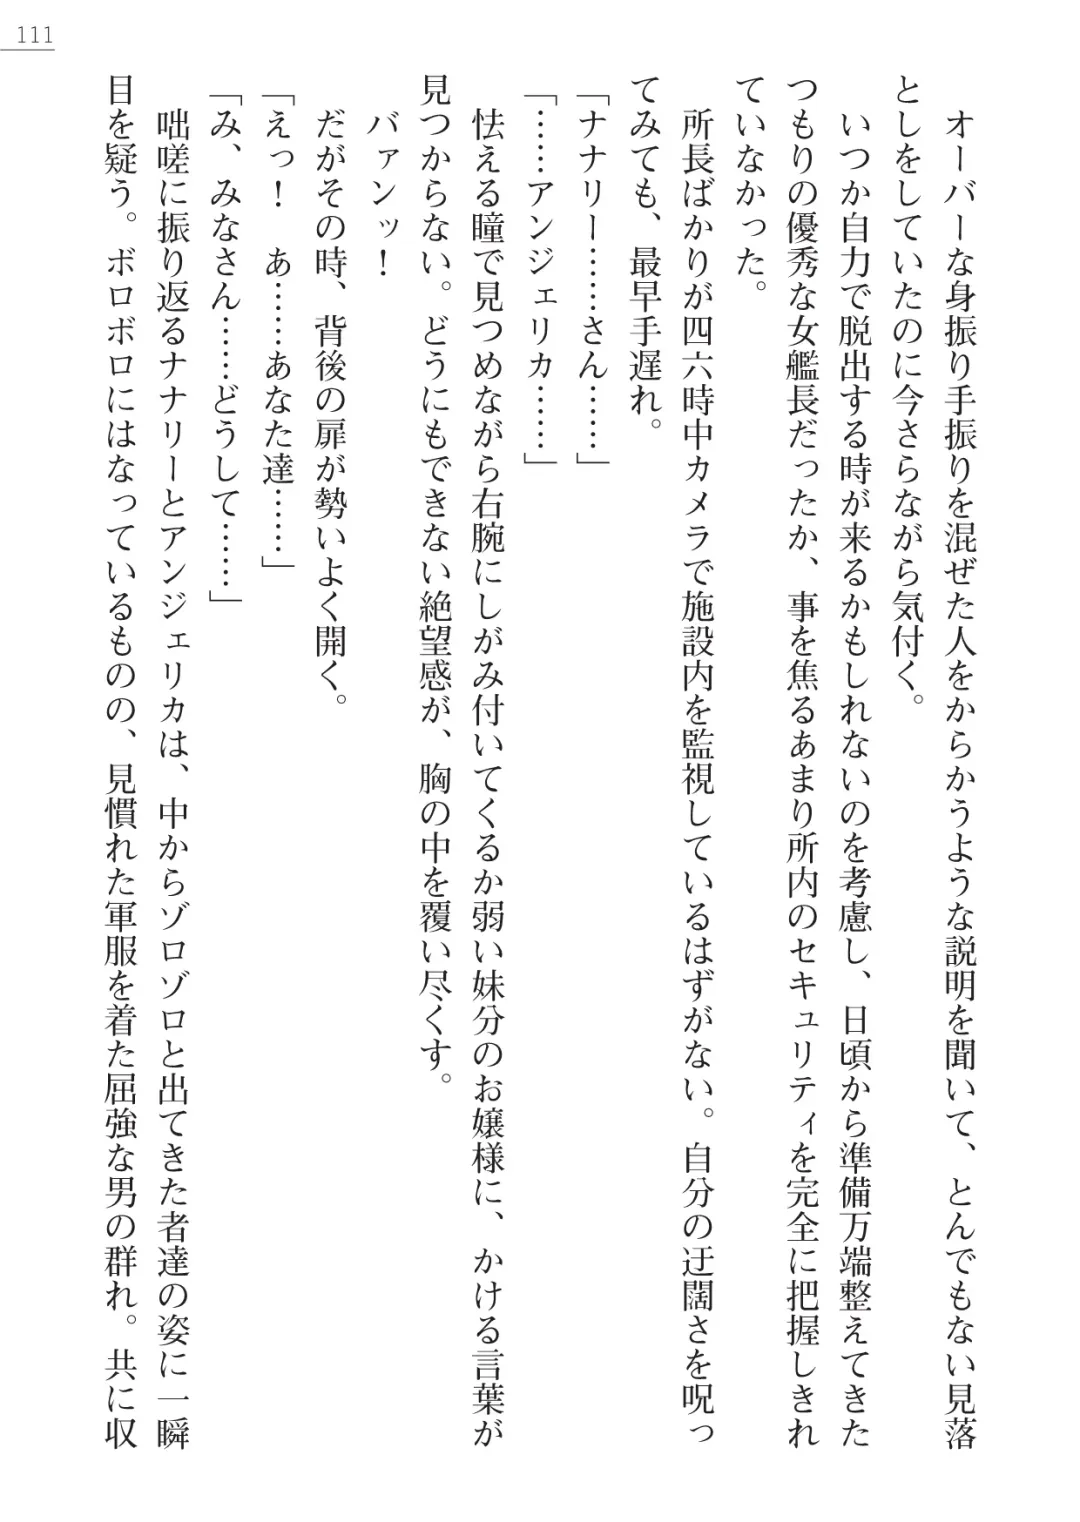 111
　オーバーな身振り手振りを混ぜた人をからかうような説明を聞いて、とんでもない見落
としをしていたのに今さらながら気付く。
　いつか自力で脱出する時が来るかもしれないのを考慮し、日頃から準備万端整えてきた
つもりの優秀な女艦長だったか、事を焦るあまり所内のセキュリティを完全に把握しきれ
ていなかった。
　所長ばかりが四六時中カメラで施設内を監視しているはずがない。自分の迂闊さを呪っ
てみても、最早手遅れ。
「ナナリー……さん……」
「……アンジェリカ……」
　怯える瞳で見つめながら右腕にしがみ付いてくるか弱い妹分のお嬢様に、かける言葉が
見つからない。どうにもできない絶望感が、胸の中を覆い尽くす。
　バァンッ！
　だがその時、背後の扉が勢いよく開く。
「えっ！　あ……あなた達……」
「み、みなさん……どうして……」
　咄嗟に振り返るナナリーとアンジェリカは、中からゾロゾロと出てきた者達の姿に一瞬
目を疑う。ボロボロにはなっているものの、見慣れた軍服を着た屈強な男の群れ。共に収